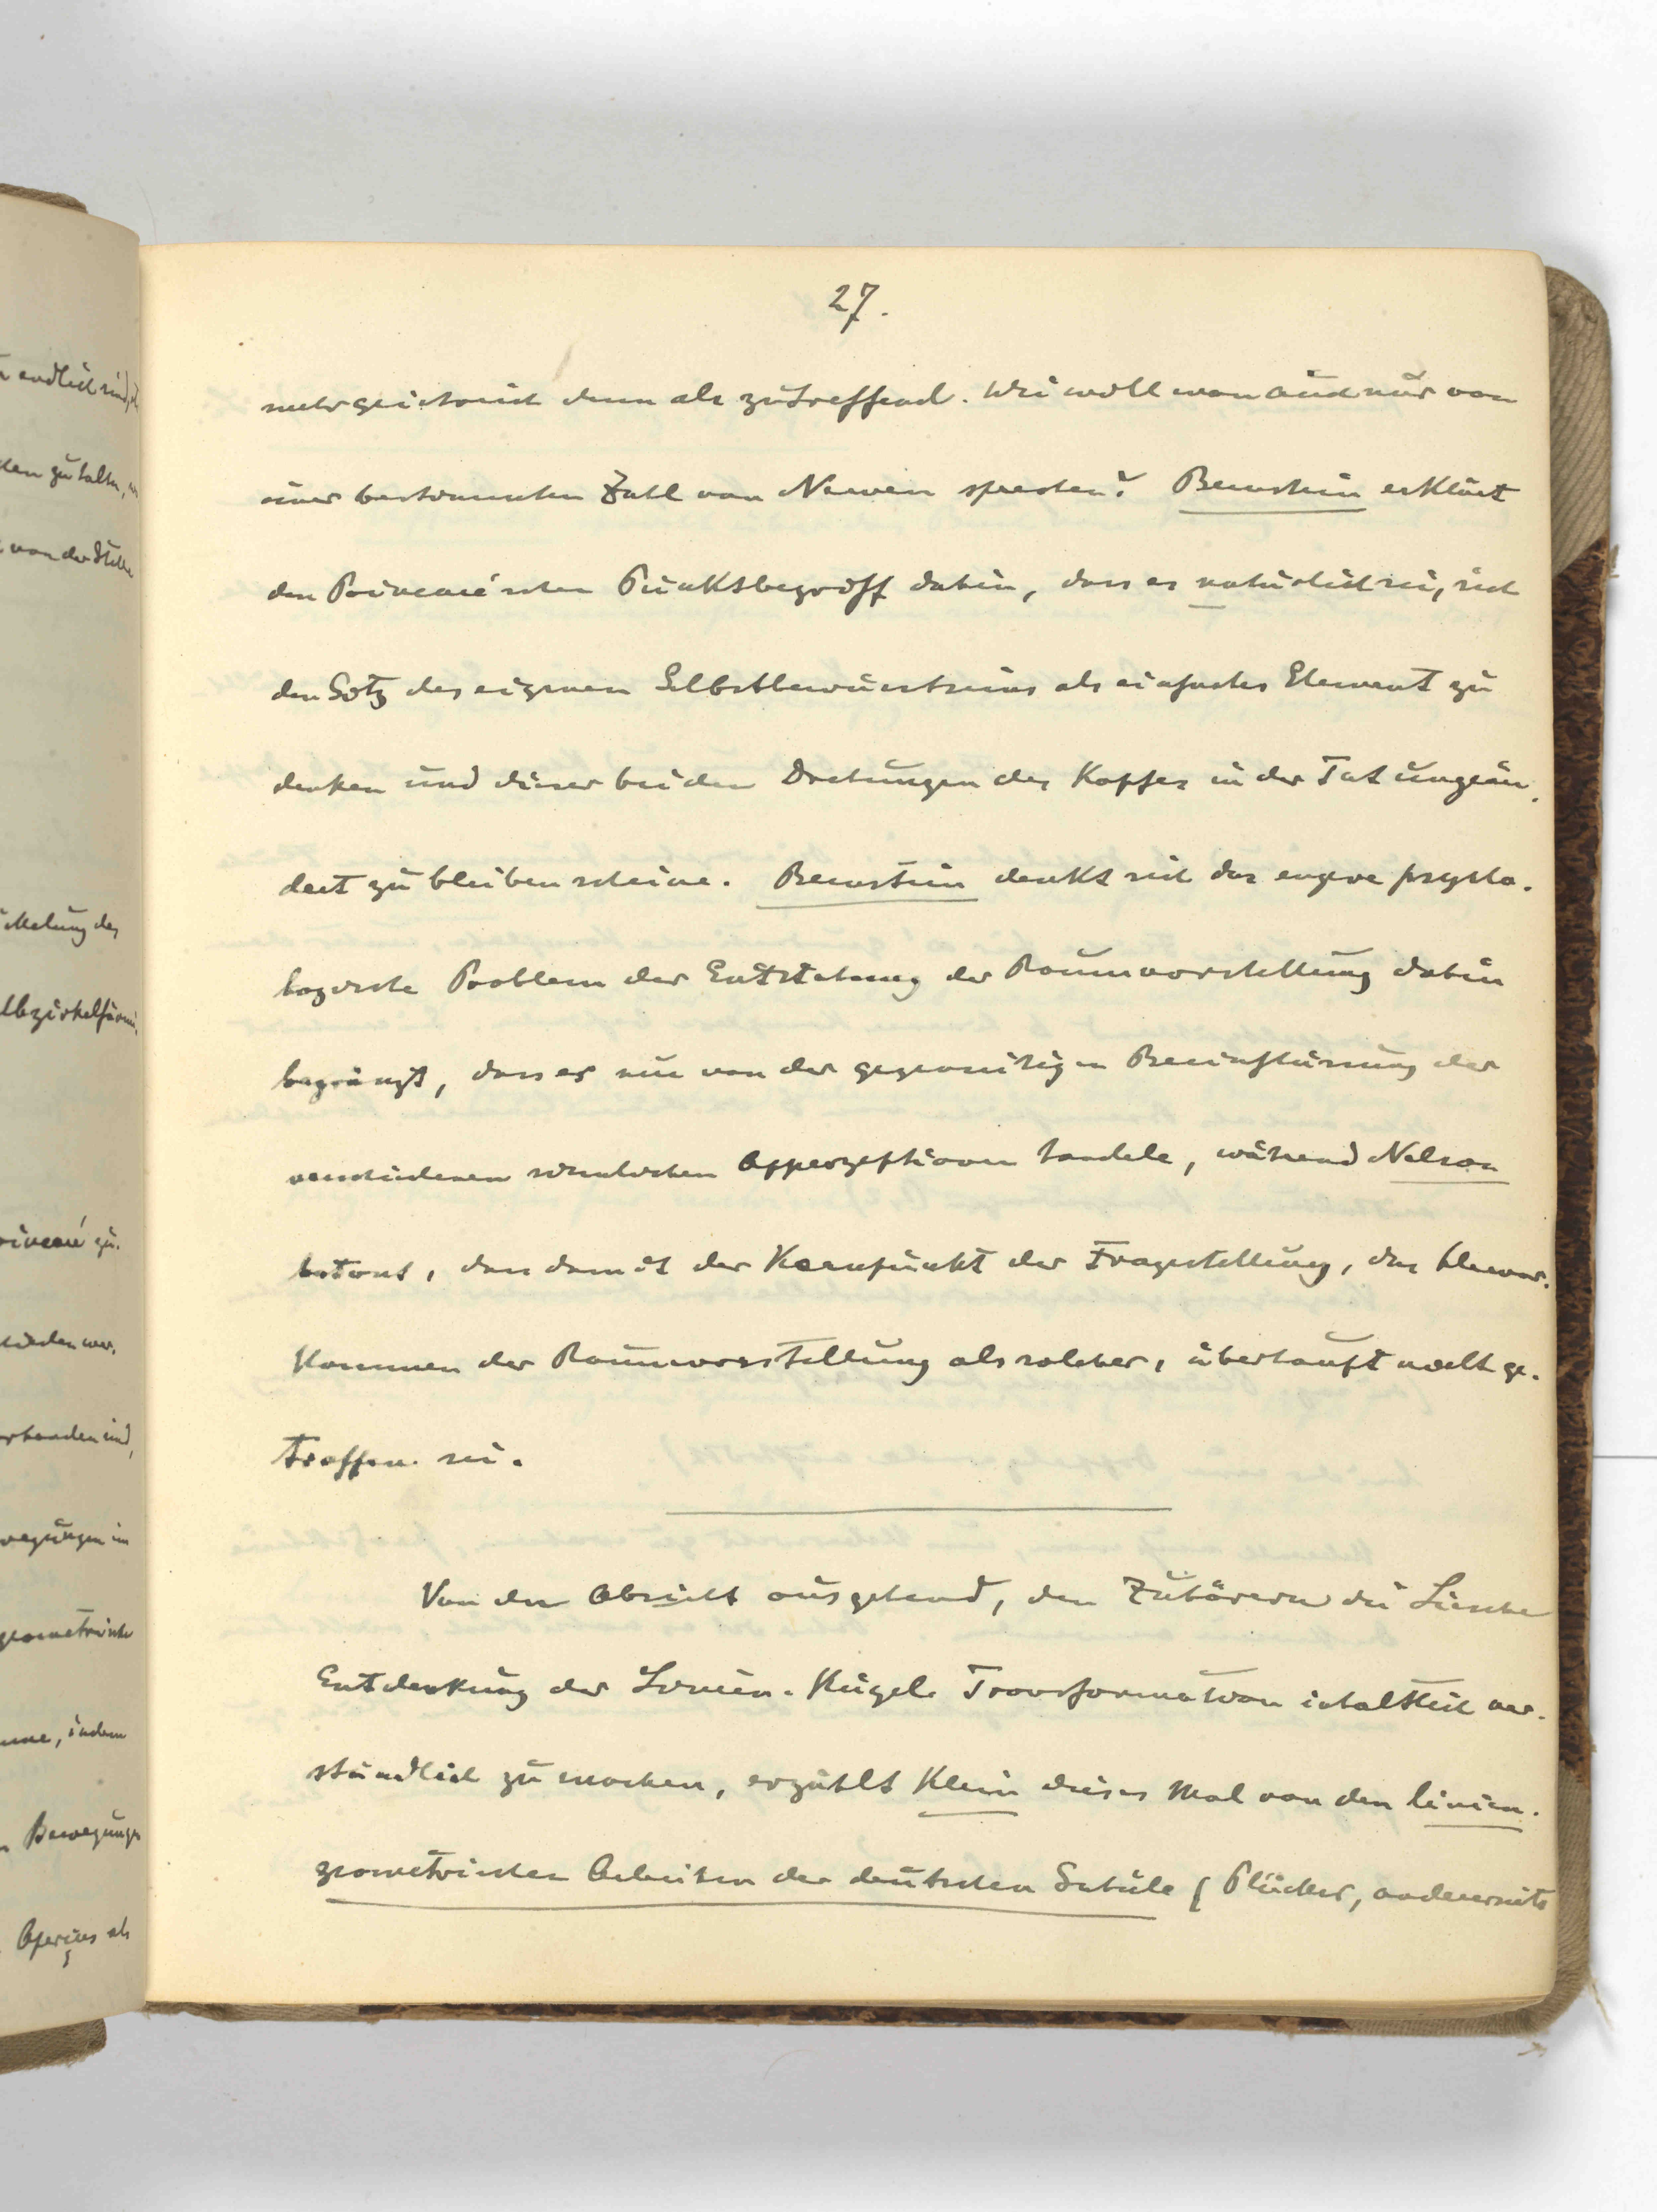 27.
mehr geistreich denn als zutreffend. Wie will man auch nur von
einer bestimmten Zahl von Nerven sprechen? Bernstein erklärt
den Poincaré'schen Punktsbegriff dahin, dass es natürlich sei, sich
den Sitz des eigenen Selbstbewusstseins als einfaches Element zu
denken und dieser bei den Drehungen des Kopfes in der Tat ungeän-
dert zu bleiben scheine. Bernstein denkt sich das engere psycho-
logische Problem der Entstehung der Raumvorstellung dahin
begränzt, dass es sich von der gegenseitigen Beeinflussung der
verschiedenen sinnlichen Apperzeptionen handele, während Nelson
betont, dass damit der Kernpunkt der Fragestellung, das
kommen der Raumvorstellung als solcher, überhaupt nicht ge-
troffen sei.
Von der Absicht ausgehend, den Zuhörern die Liesche
Entdeckung der Linien-Kugel-Transformation inhaltlich ver-
ständlich zu machen, erzählt Klein dieses Mal von den linien-
geometrischen Arbeiten der deutschen Schule (Plücker, andererseits
endlich sind,
zu halten,
von der Stelle
des
Poincaré zu-
werden wer-
vorhanden sind,
Bewegungen im
geometrische
indem
Bewegungen
Aperçus als